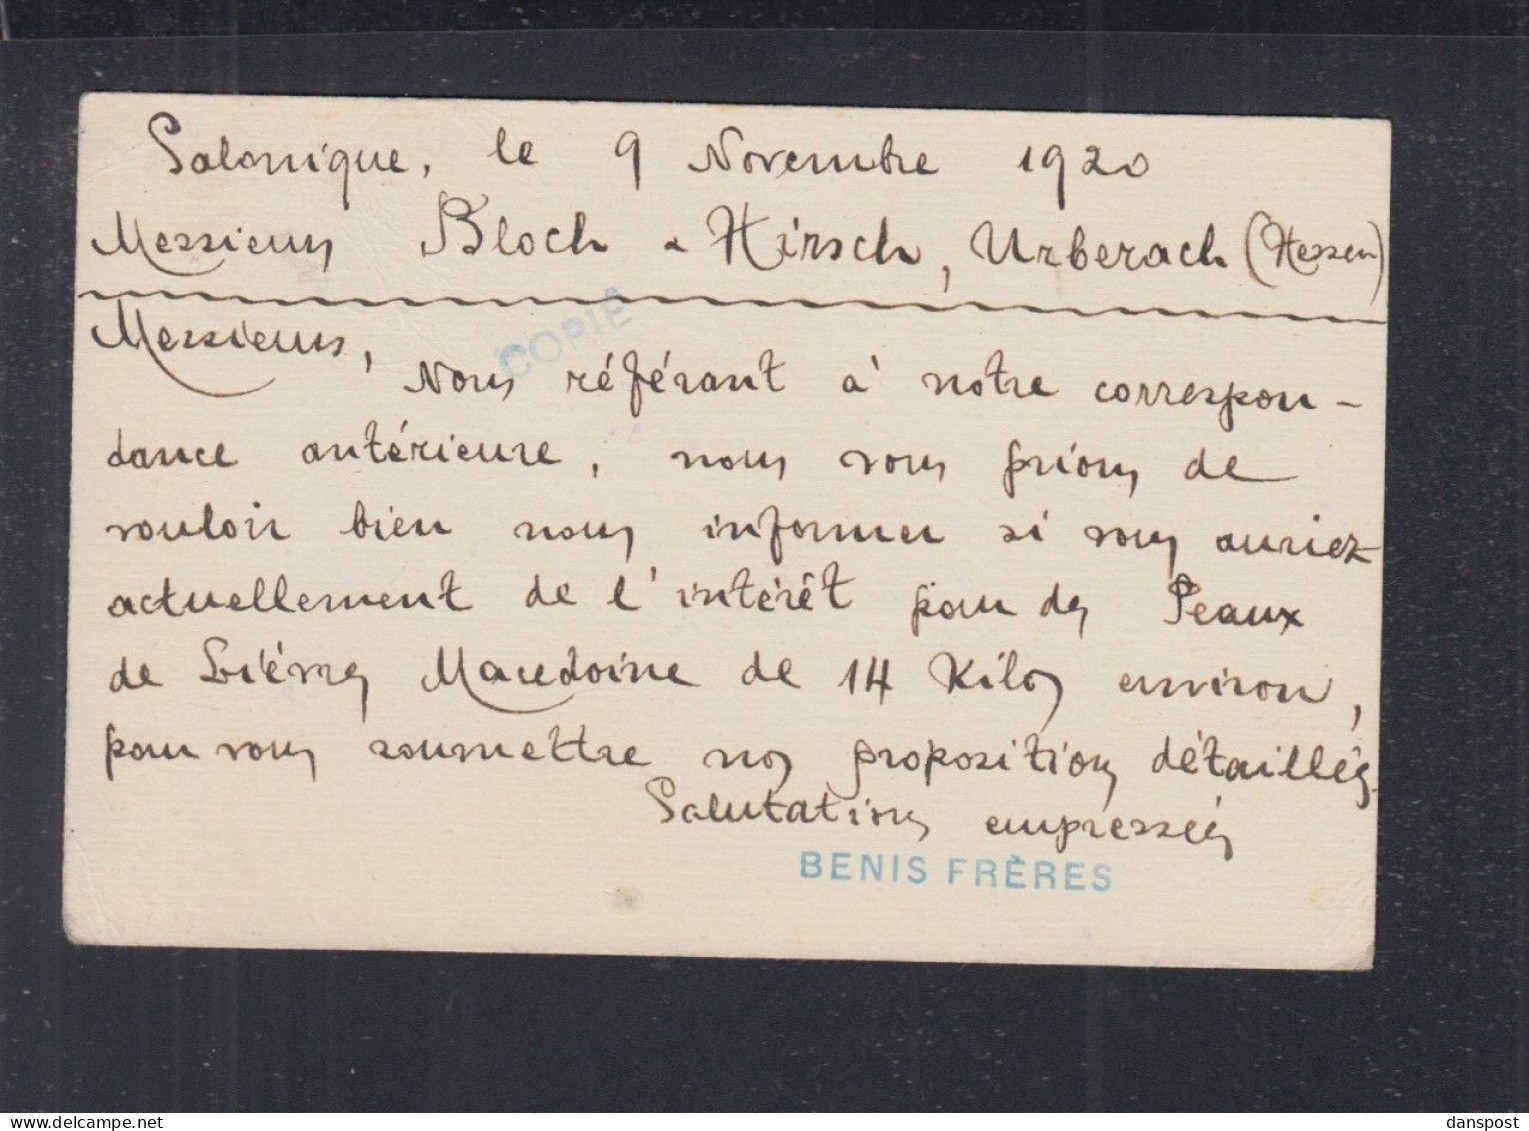 Salonique, le 9 Novembre 1920
Messieurs Bloch & Hirsch, Urberach (Hessen)
Messieurs,
COPIÉ
Nous référant à notre correspon-
dance antérieure, nous vous prions de
vouloir bien nous informer si vous auriez
actuellement de l'intérêt pour des Peaux
de Lièvres Macedoine de 14 Kilos environ,
pour vous soumettre nos propositions détaillées.
Salutations empressées
BENIS FRÈRES
www.delcampe.net
danspost